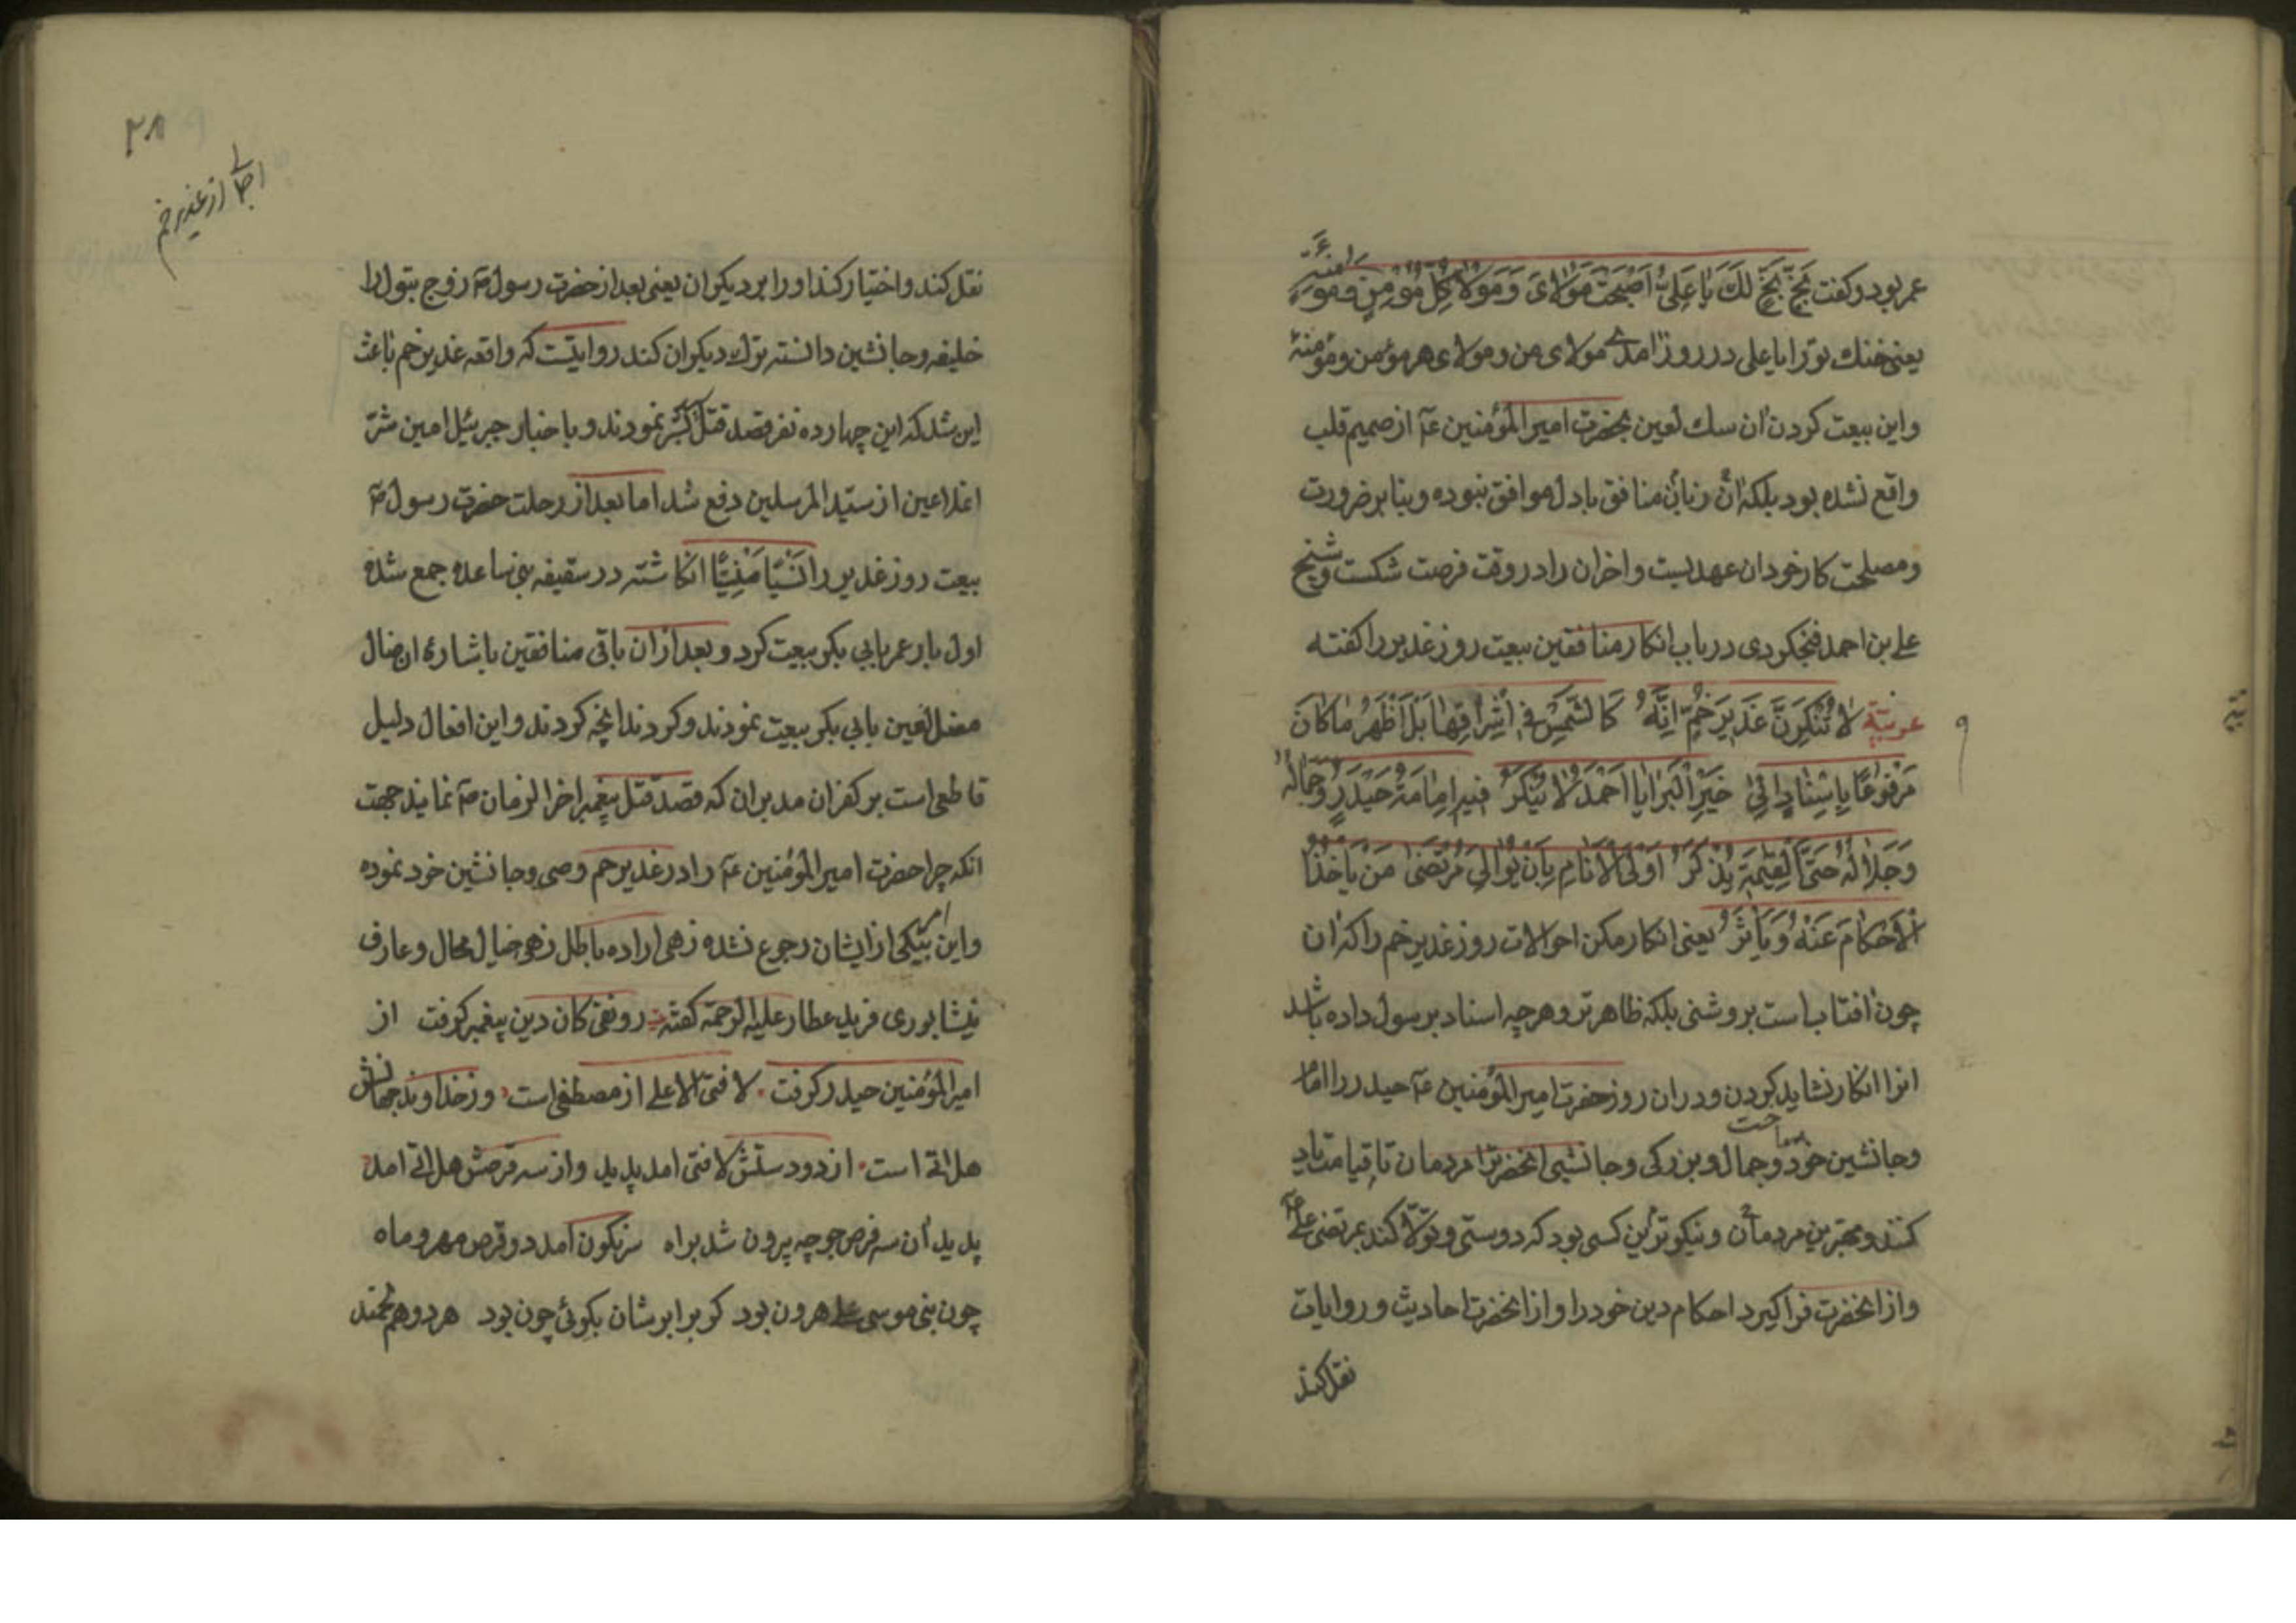 عمر بود و کفت بَخٍّ بَخٍّ لَكَ یَا عَلِیُّ اَصْبَحْتَ مَوْلَایَ وَ مَوْلَا کُلِّ مُؤْمِنٍ وَ مُؤْمِنَةٍ
یعنی خنك بو ترا یا علی در روز امدی مولای من و مولای هر مؤمن و مؤمنهٔ
و این بیعت کردن ان سك لعین بحضرت امیر المؤمنین عم از صمیم قلب
واقع نشده بود بلکه ان زبان منافق با دل موافق نبوده و بنا بر ضرورت
و مصلحت کار خود ان عهد بست و اخر ان را در وقت فرصت شکست و شیخ
علی بن احمد فنجکردی در باب انکار منافقین بیعت روز غدیر را کفته
عربیّة لَا تُنْکِرَنَّ غَدِیرَ خُمٍّ اِنَّهُ کَالشَّمْسِ فِی اِشْرَاقِهَا بَلْ اَظْهَرُ مَا کَانَ
مَرْفُوعًا بِاِسْنَادٍ اِلَی خَیْرِ الْبَرَایَا اَحْمَدَ لَا یُنْکَرُ فیه اِمَامَةُ حَیْدَرٍ وَ جَمَالُهُ
وَ جَلَالُهُ حَتَّی الْقِیٰمَةِ یُذْکَرُ اَوْلَی الْاَنَامِ بِاَنْ یُوَالِیَ مُرْتَضَی مَنْ یَاْخُذُ
الْاَحْکَامَ عَنْهُ وَ یَاْثُرُ یعنی انکار مکن احوالات روز غدیر خم را که ان
چون افتابست بروشنی بلکه ظاهرتر و هر چه اسناد برسول داده باشد
انرا انکار نشاید کردن و در ان روز حضرت امیر المؤمنین عم حیدر را امام
و جانشین خود ساخت و جمال و بزرکی و جانشینی انحضرت را مردمان تا قیامت یاد
کنند و بهترین مردمان و نیکوترین کسی بود که دوستی و تولّا کند بمرتضی علی عم
و از انحضرت فرا کیرد احکام دین خود را و از انحضرت احادیث و روایات
نقل کند
۲۸
اجمالی از غدیر خم
نقل کند و اختیار کند او را بر دیکران یعنی بعد از حضرت رسول ص زوج بتول را
خلیفه و جانشین دانسته ترك دیکران کند روایتست که واقعه غدیر خم باعث
این شد که این چهارده نفر قصد قتل نمودند و باخبار جبرئیل امین شرّ
اعدا عین از سیّد المرسلین دفع شد اما بعد از رحلت حضرت رسول ص
بیعت روز غدیر را نَسْیًا مَنْسِیًّا انکاشته در سقیفه بنی ساعده جمع شده
اول بار عمر بابی بکر بیعت کرد و بعد از ان باقی منافقین باشارهٔ ان ضال
مضل لعین بابی بکر بیعت نمودند و کردند انچه کردند و این افعال دلیل
قاطعی است بر کفر ان مدبران که قصد قتل پیغمبر اخر الزمان ص نمایند جهت
انکه چرا حضرت امیر المؤمنین عم را در غدیر خم وصی و جانشین خود نموده
و این امر بیکی از ایشان رجوع نشده زهی اراده باطل زهی خیال محال و عارف
نیشابوری فرید عطار علیه الرحمة کفته رونقی کان دین پیغمبر کرفت از
امیر المؤمنین حیدر کرفت لا فتی الا علی از مصطفی است و ز خداوند جهانش
هل اتی است از دو دستش لا فتی امد پدید و از سه قرصش هل اتی امد
پدید ان سه قرص جو چه پرون شد براه سرنکون امد دو قرص مهر و ماه
چون نبی موسی علی هرون بود کر برابرشان بکوئی چون بود هر دو هم تختند